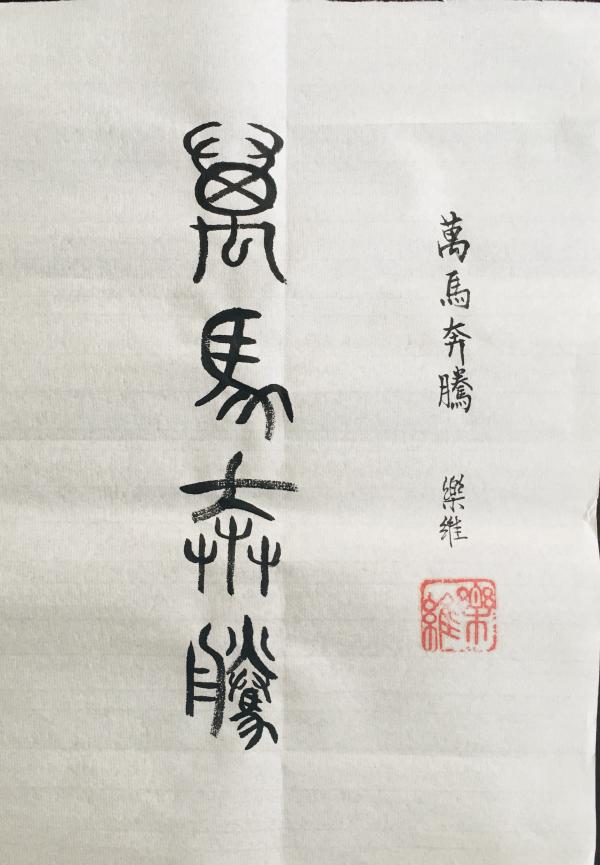 萬馬奔騰
萬馬奔騰 樂維
樂維